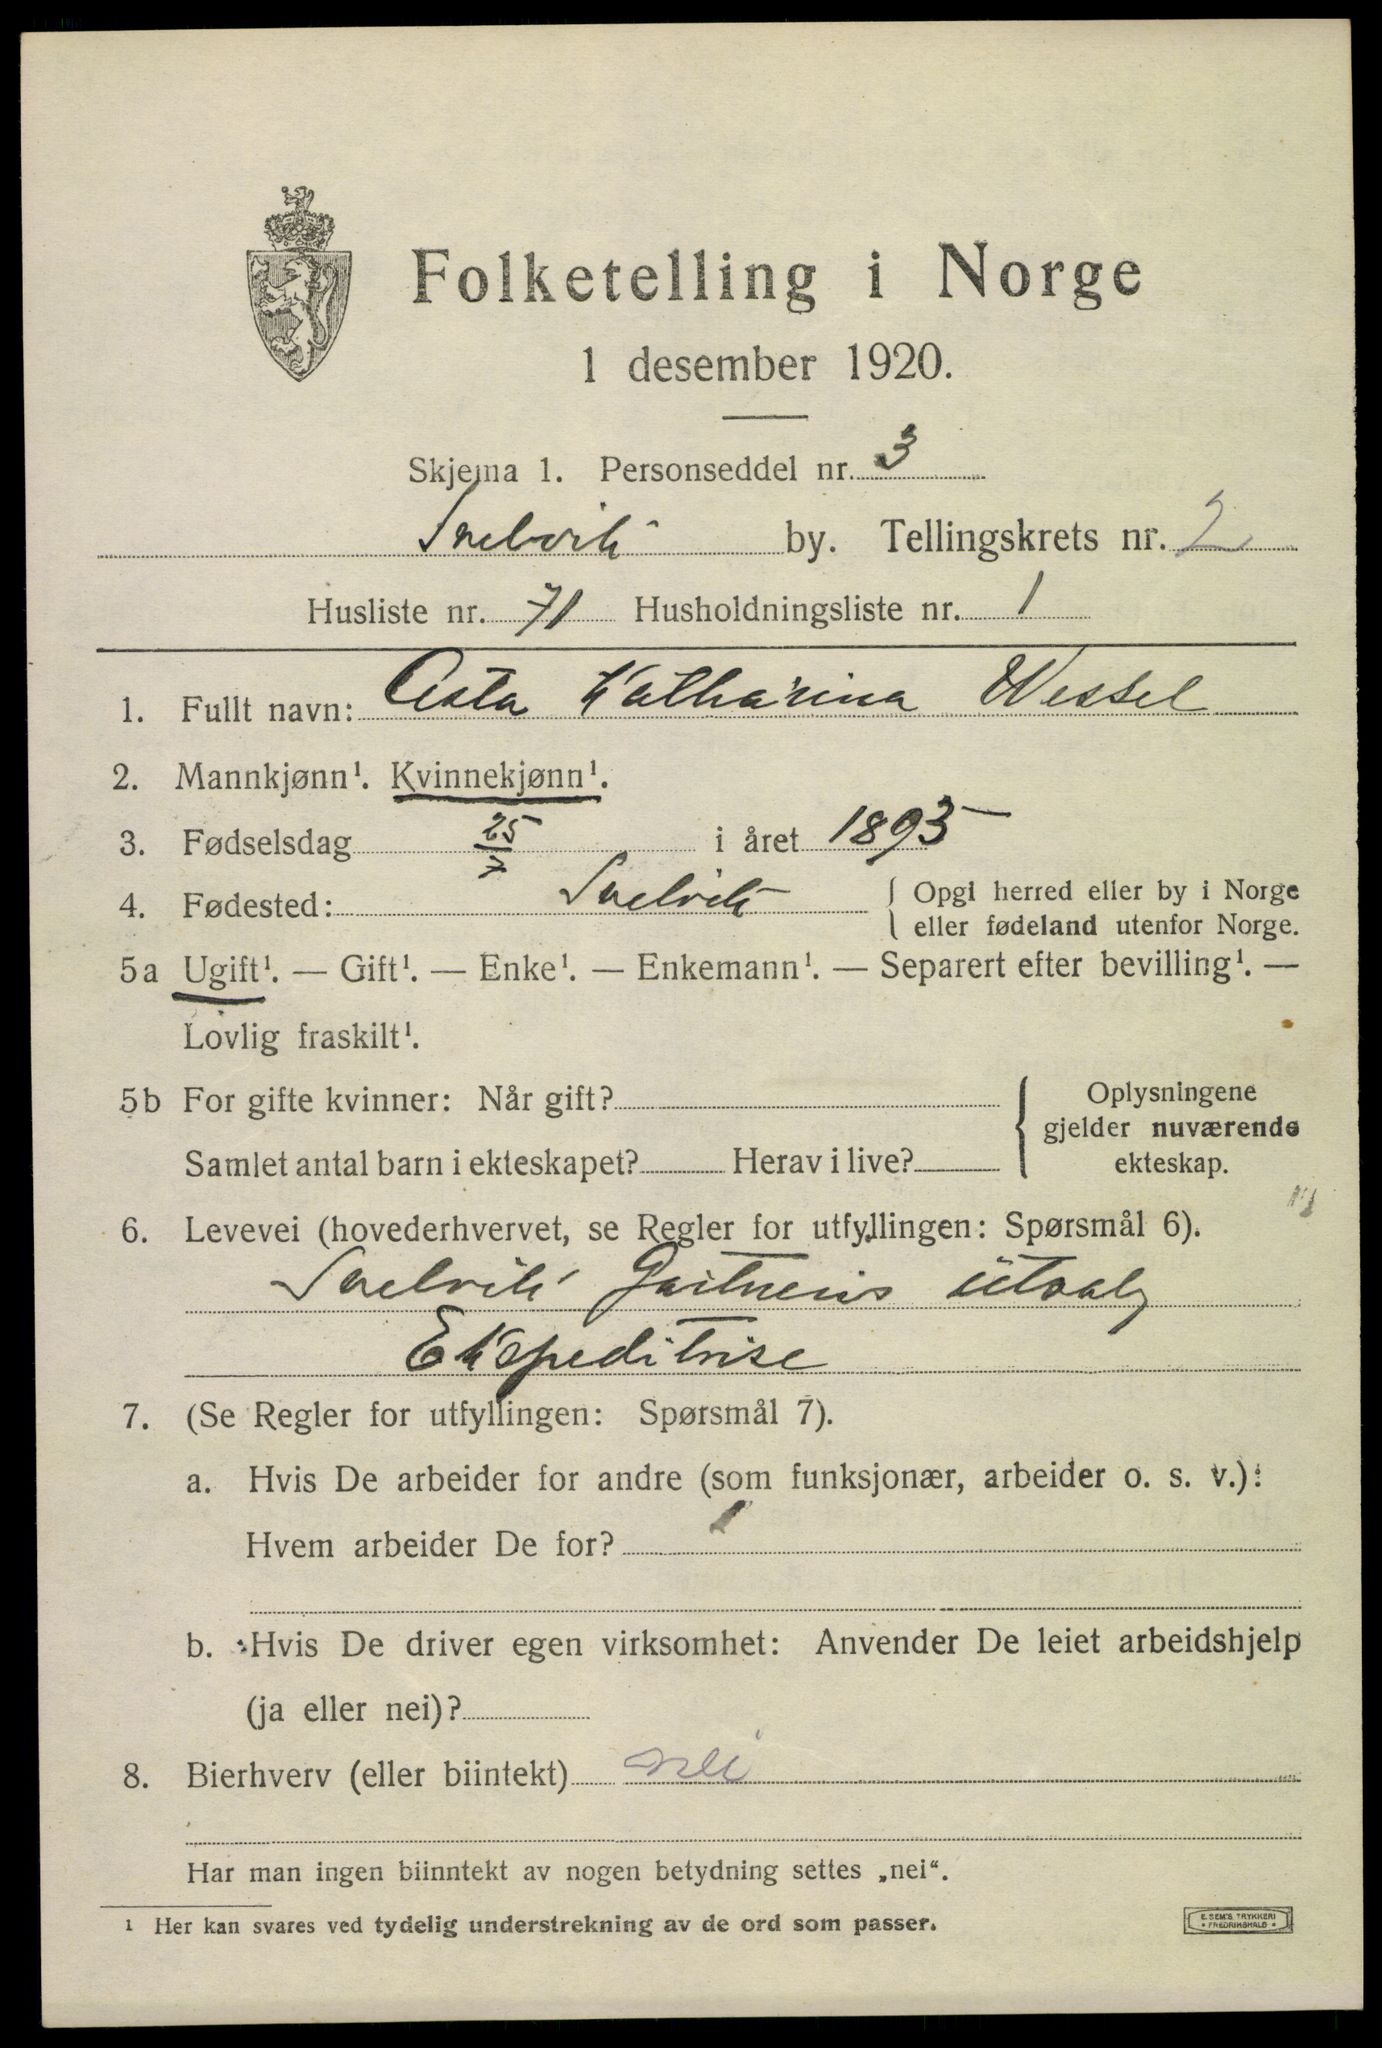 Folketelling i Norge
1 desember 1920.
Skjema 1. Personseddel nr. 3
Svelvik by. Tellingskrets nr. 2
Husliste nr. 71 Husholdningsliste nr. 1
1. Fullt navn: Asta Katharina Wessel
2. Mannkjønn¹. Kvinnekjønn¹.
3. Fødselsdag 25/7 i året 1893
4. Fødested: Svelvik { Opgi herred eller by i Norge
eller fødeland utenfor Norge.
5a Ugift¹. — Gift¹. — Enke¹. — Enkemann¹. — Separert efter bevilling¹. —
Lovlig fraskilt¹.
5b For gifte kvinner: Når gift? { Oplysningene
gjelder nuværende
Samlet antal barn i ekteskapet? Herav i live? ekteskap.
6. Levevei (hovederhvervet, se Regler for utfyllingen: Spørsmål 6).
Svelvik Gartneris utsalg
Ekspeditrise
7. (Se Regler for utfyllingen: Spørsmål 7).
a. Hvis De arbeider for andre (som funksjonær, arbeider o. s. v.):
Hvem arbeider De for?
b. Hvis De driver egen virksomhet: Anvender De leiet arbeidshjelp
(ja eller nei)?
8. Bierhverv (eller biintekt) nei
Har man ingen biinntekt av nogen betydning settes „nei“.
¹ Her kan svares ved tydelig understrekning av de ord som passer.
E. SEM'S TRYKKERI
• FREDRIKSHALD •